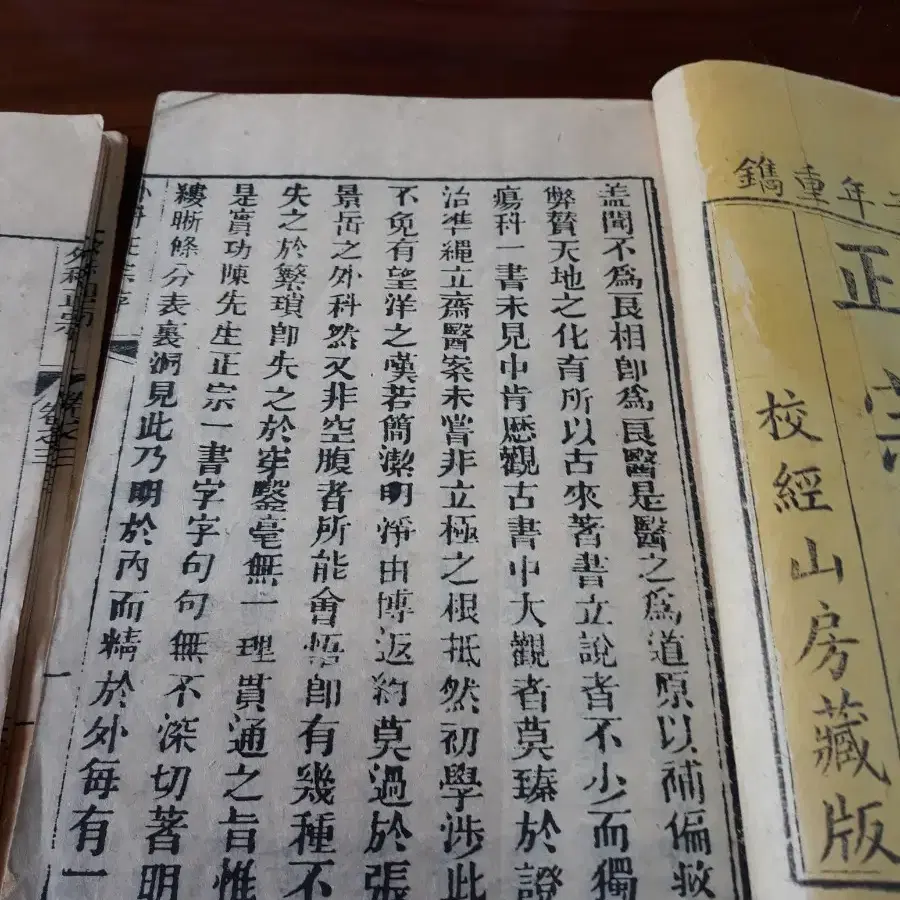 年重鐫
正宗
校經山房藏版
盖聞不爲良相卽爲良醫是醫之爲道原以補偏救
弊贊天地之化育所以古來著書立說者不少而獨
瘍科一書未見中肯歷觀古書中大觀者莫臻於證
治準繩立齋醫案未嘗非立極之根抵然初學涉此
不免有望洋之嘆若簡潔明淨由博返約莫過於張
景岳之外科然又非空腹者所能會悟卽有幾種不
失之於繁瑣卽失之於穿鑿毫無一理貫通之旨惟
是實功陳先生正宗一書字字句句無不深切著明
縷晰條分表裏洞見此乃明於內而精於外每有一
外科正宗序 一
外科正宗